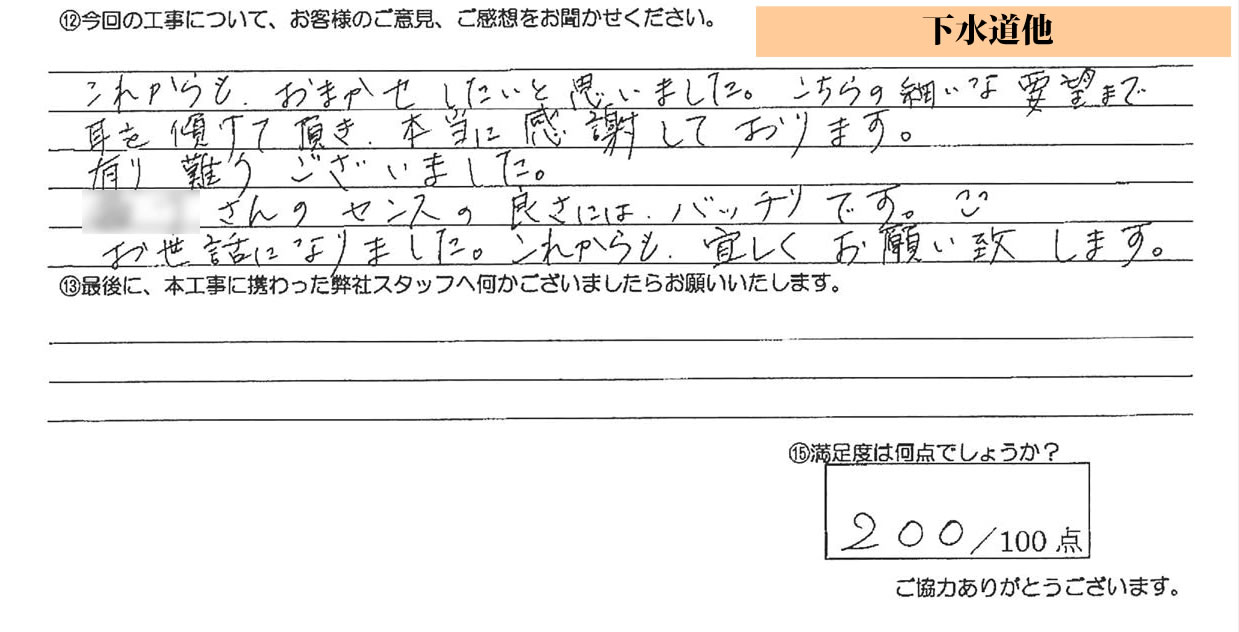 ⑫今回の工事について、お客様のご意見、ご感想をお聞かせください。
下水道他
これからも、おまかせしたいと思いました。こちらの細いな要望まで
耳を傾けて頂き、本当に感謝しております。
有り難うございました。
さんのセンスの良さには、バッチリです。
お世話になりました。これからも、宜しくお願い致します。
⑬最後に、本工事に携わった弊社スタッフへ何かございましたらお願いいたします。
⑮満足度は何点でしょうか？
200/100点
ご協力ありがとうございます。